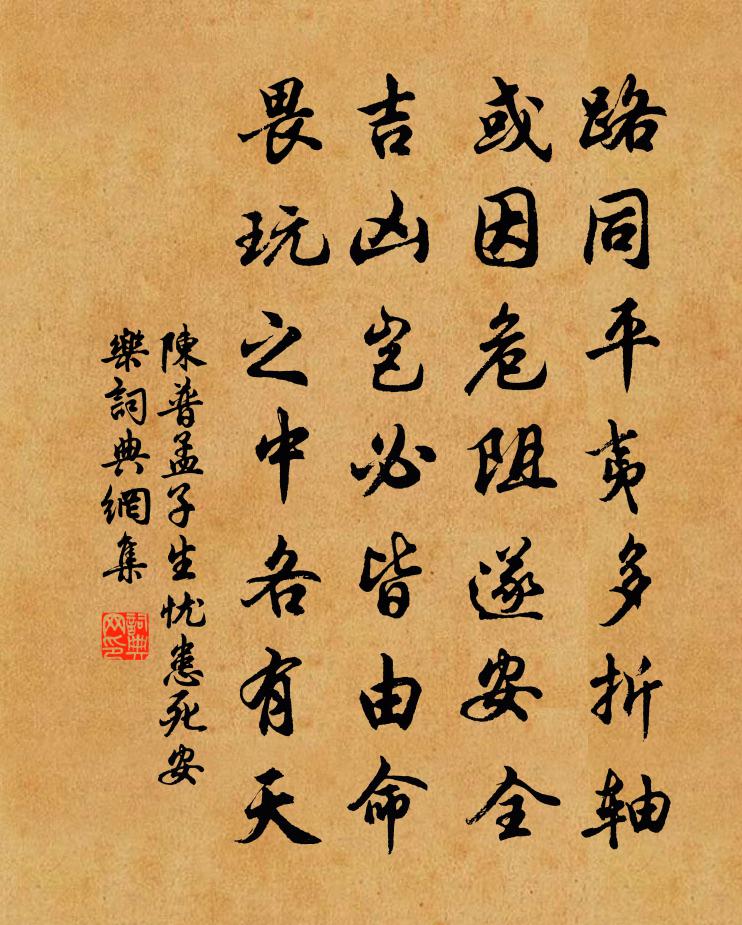 路同平夷多折轴
或因危阻遂安全
吉凶岂必皆由命
畏玩之中各有天
陳普孟子生忧患死安
樂詞典網集
詞典网印